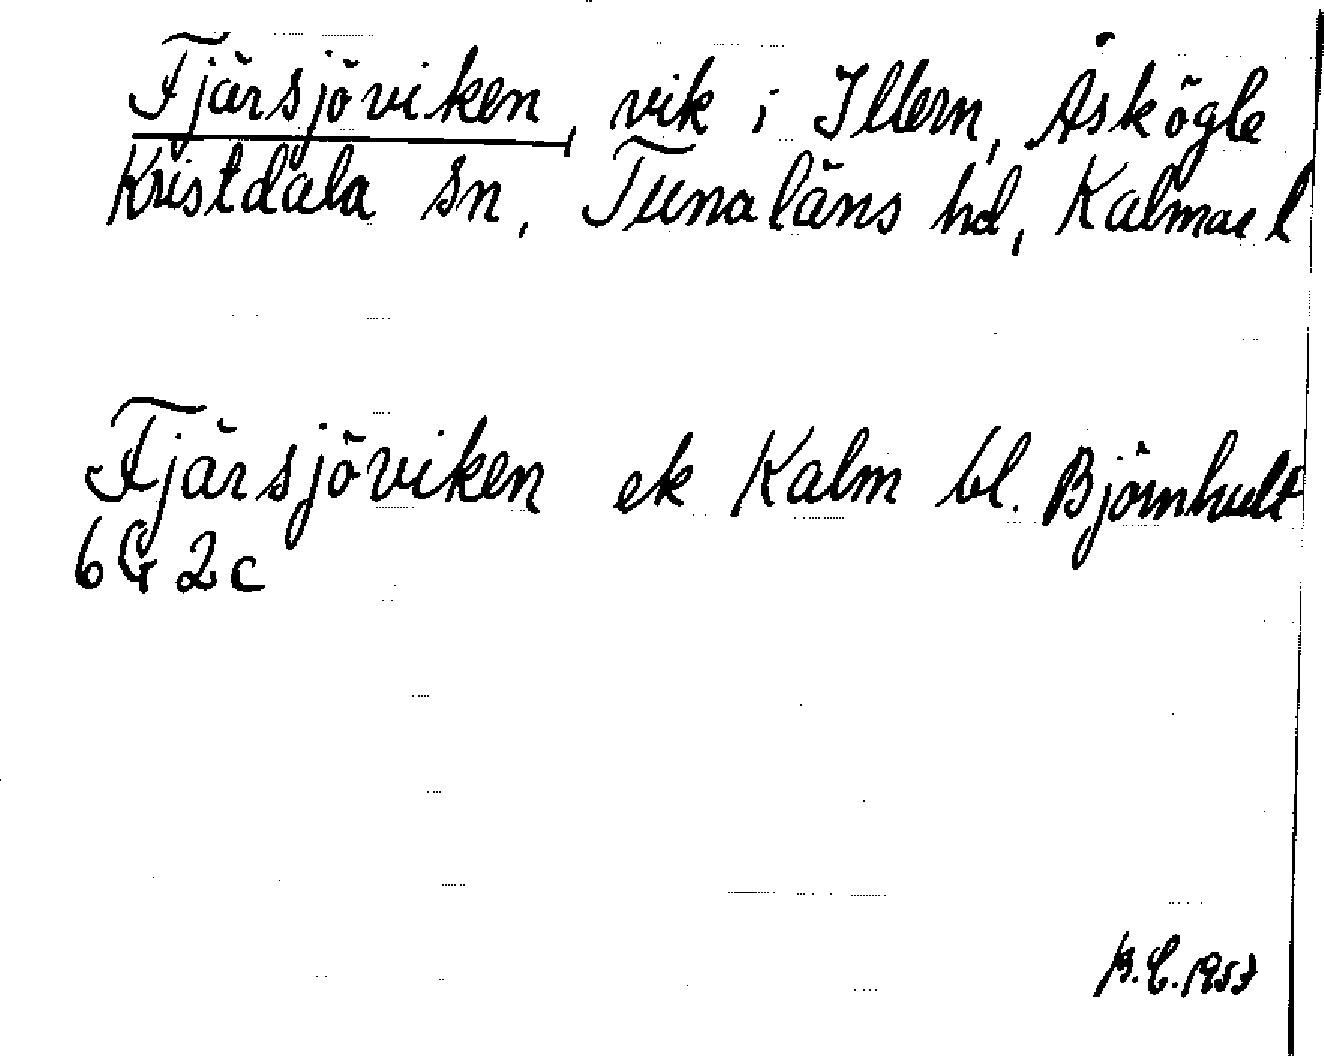 Fjärsjöviken, vik i Illern, Åskögle
Kristdala sn, Tunaläns hd, Kalmar l
Fjärsjöviken ek Kalm bl. Björnhult
6G 2c
1957